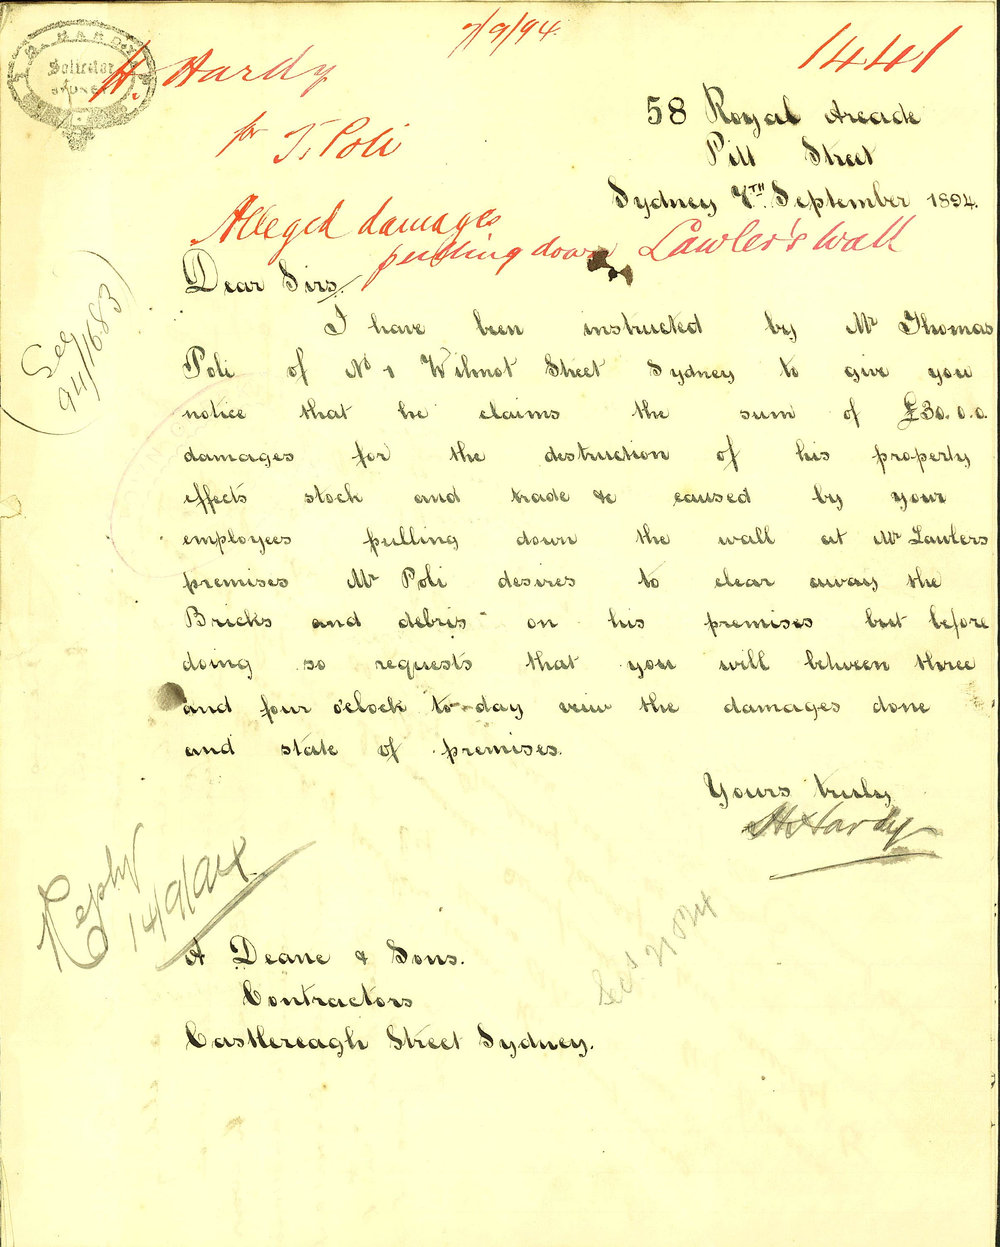 7/9/94
1441
H. HARDY
Solicitor
SYDNEY
H. Hardy
for T. Poli
Alleged damages
pulling down Lawler's Wall
58 Royal Arcade
Pitt Street
Sydney 7TH September 1894.
Dear Sirs,
(See
94/1683)
I have been instructed by Mr Thomas
Poli of No 1 Wilmot Street Sydney to give you
notice that he claims the sum of £30.0.0.
damages for the destruction of his property
effects stock and trade &c caused by your
employees pulling down the wall at Mr Lawlers
premises Mr Poli desires to clear away the
Bricks and debris on his premises but before
doing so requests that you will between three
and four o'clock to-day veiw the damages done
and state of premises.
Yours truly
H Hardy
Reply
14/9/94
A Deane & Sons.
Contractors
Castlereagh Street Sydney.